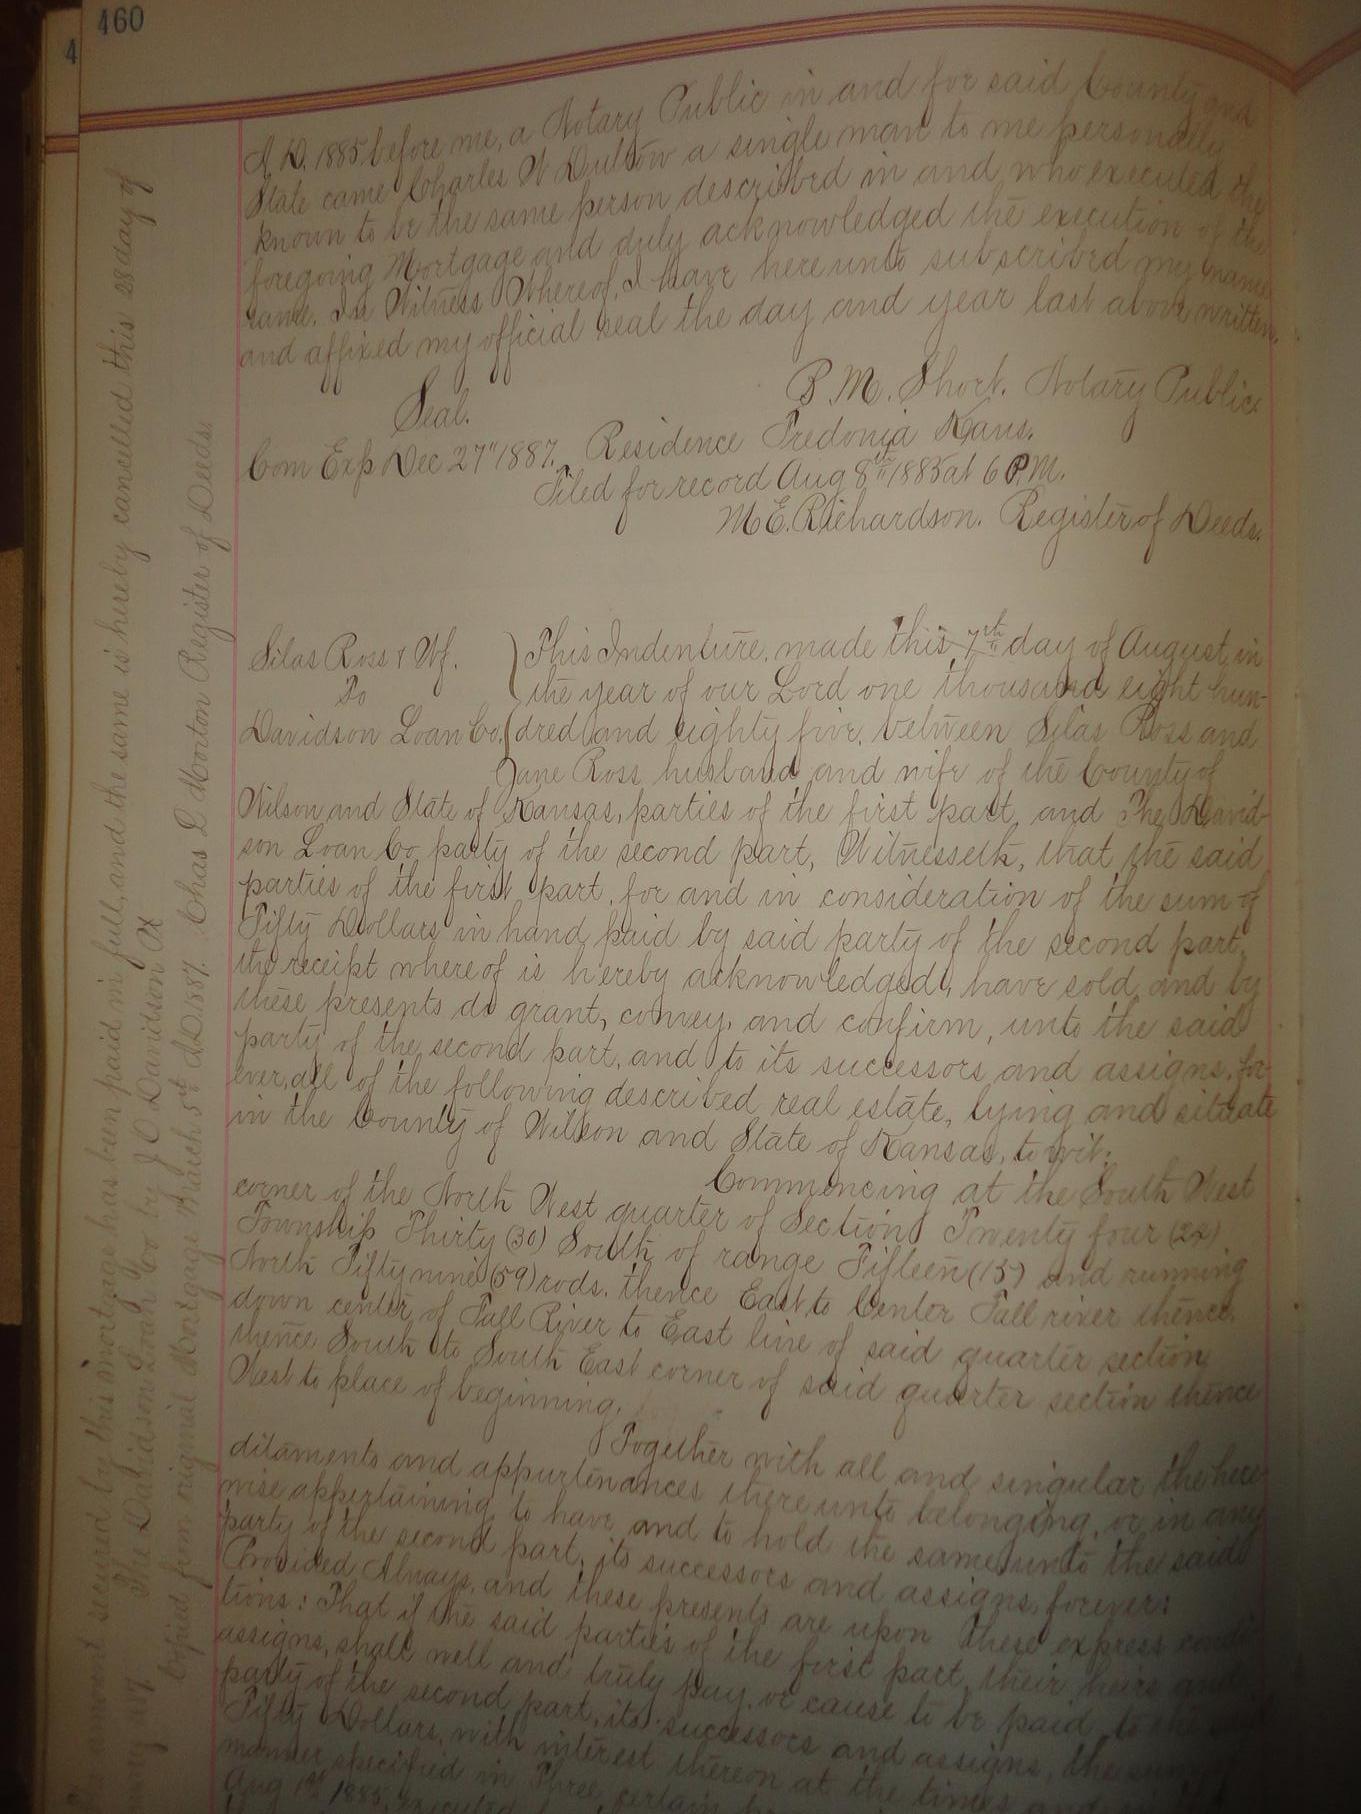 460
4
A.D. 1885 before me, a Notary Public in and for said County and
State came Charles W a single man to me personally
known to be the same person described in and who executed the
foregoing Mortgage and duly acknowledged the execution of the
same. In Witness Whereof, I have hereunto subscribed my name
and affixed my official seal the day and year last above written.
B. M. Short. Notary Public.
Seal.
Com Exp Dec 27" 1887. Residence Fredonia Kans.
Filed for record Aug 8th 1885 at 6 P.M.
M E. Richardson. Register of Deeds.
Silas Ross & Wf.
To
Davidson Loan Co.
This Indenture, made this 7th day of August, in
the year of our Lord one thousand eight hun-
dred and eighty five, between Silas Ross and
Jane Ross, husband and wife of the County of
Wilson and State of Kansas, parties of the first part, and The David-
son Loan Co party of the second part, Witnesseth, that the said
parties of the first part, for and in consideration of the sum of
Fifty Dollars in hand paid by said party of the second part,
the receipt whereof is hereby acknowledged, have sold, and by
these presents do grant, convey, and confirm, unto the said
party of the second part, and to its successors and assigns, for-
ever, all of the following described real estate, lying and situate
in the County of Wilson and State of Kansas, to wit:
Commencing at the South West
corner of the North West quarter of Section Twenty four (24)
Township Thirty (30) South of range Fifteen (15) and running
North Fifty nine (59) rods. thence East to Center Fall river thence
down center of Fall River to East line of said quarter section
thence South to South East corner of said quarter section thence
West to place of beginning.
Together with all and singular the here-
ditaments and appurtenances there unto belonging, or in any
wise appertaining, to have, and to hold the same unto the said
party of the second part, its successors and assigns, forever:
Provided Always, and these presents are upon these express condi-
tions: That if the said parties of the first part, their heirs and
assigns, shall well and truly pay, or cause to be paid, to the said
party of the second part, its successors and assigns, the sum of
Fifty Dollars, with interest thereon at the times and
manner specified in Three certain
Aug 1st 1885, executed
amount secured by this mortgage has been paid in full, and the same is hereby cancelled this 28 day of
The Davidson Loan Co by J O Davidson
Copied from original Mortgage March 5th A.D. 1887. Chas D Morton Register of Deeds.